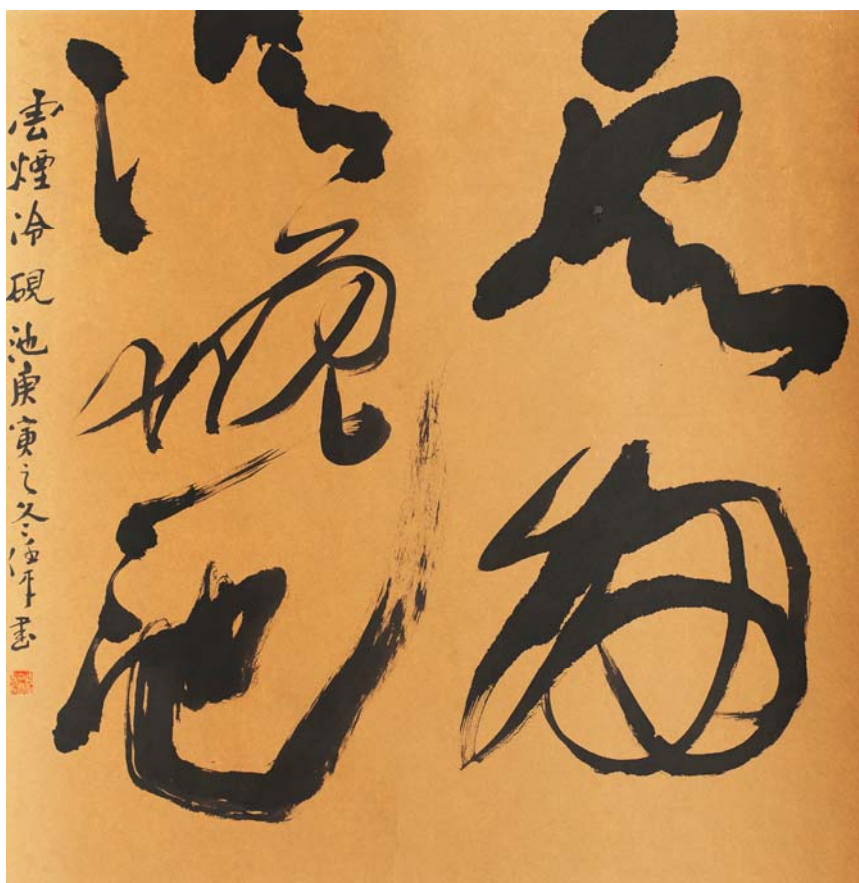 雲煙
冷硯池
雲煙冷硯池庚寅之冬書